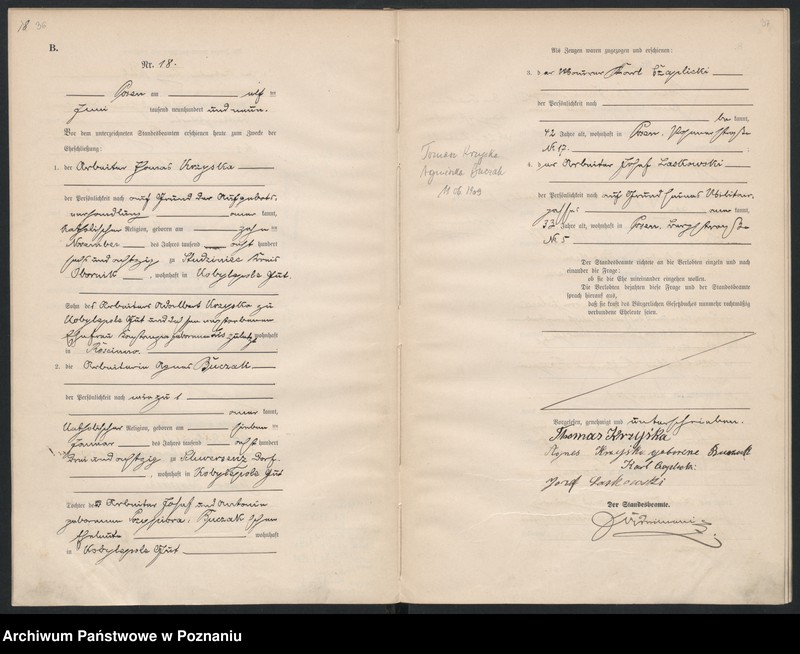 18 36
B.
Nr. 18.
Posen am elf ten
Juni tausend neunhundert und neun.
Vor dem unterzeichneten Standesbeamten erschienen heute zum Zwecke der
Eheschließung:
1. der Arbeiter Thomas Krzyska
der Persönlichkeit nach auf Grund der Aufgebots-
verhandlung aner kannt,
katholischer Religion, geboren am zehn ten
November des Jahres tausend acht hundert
sechs und achtzig zu Studzinice Kreis
Obornik, wohnhaft in Kobylepole Gut.
Sohn des Arbeiters Adalbert Krzyska zu
Kobylepole Gut und dessen verstorbenen
Ehefrau geborenen zuletzt wohnhaft
in Rościnno.
2. die Arbeiterin Agnes Buczak
der Persönlichkeit nach wie zu 1
aner kannt,
katholischer Religion, geboren am sieben ten
Januar des Jahres tausend acht hundert
drei und achtzig zu Schwersenz Dorf
, wohnhaft in Kobylepole Gut
Tochter der Arbeiter Josef und Antonie
geborenen Buczak'schen
Eheleute wohnhaft
in Kobylepole Gut
Als Zeugen waren zugezogen und erschienen:
3. der Maurer Karl Czaplicki
der Persönlichkeit nach
be kannt,
42 Jahre alt, wohnhaft in Posen,
Nr. 17.
4. der Arbeiter Josef Laskowski
der Persönlichkeit nach auf Grund seines Militär-
passes aner kannt,
33 Jahre alt, wohnhaft in Posen, Bergstraße
Nr. 5
Der Standesbeamte richtete an die Verlobten einzeln und nach
einander die Frage:
ob sie die Ehe miteinander eingehen wollen.
Die Verlobten bejahten diese Frage und der Standesbeamte
sprach hierauf aus,
daß sie kraft des Bürgerlichen Gesetzbuches nunmehr rechtmäßig
verbundene Eheleute seien.
Vorgelesen, genehmigt und unterschrieben.
Thomas Krzyska
Agnes Krzyska geborene Buczak
Karl Czaplicki
Jozef Laskowski
Der Standesbeamte.
Tomasz Krzyska
Agnieszka Buczak
11 06 1909
Archiwum Państwowe w Poznaniu